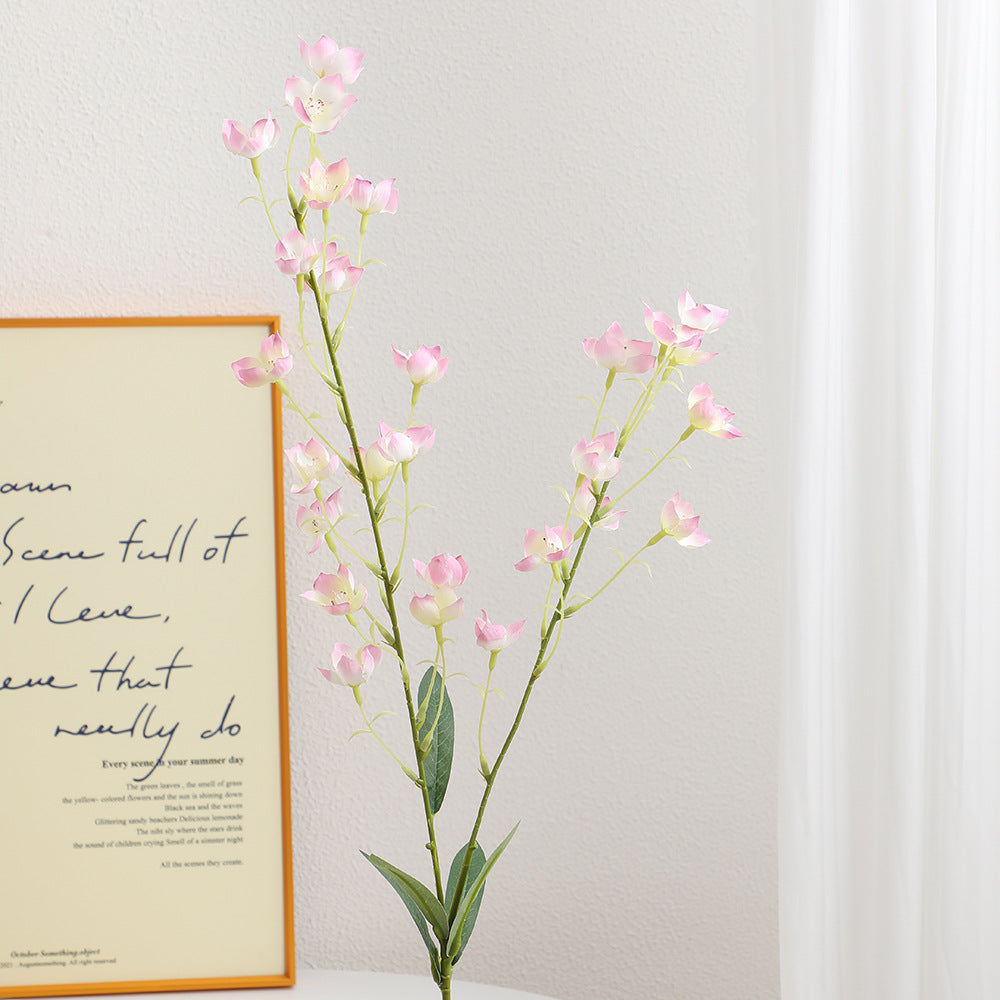 Scene full of
I Love,
that
really do
Every scene in your summer day
The green leaves , the smell of grass
the yellow- colored flowers and the sun is shining down
Black sea and the waves
Glittering sandy beachers Delicious lemonade
The niht sly where the stars drink
the sound of children crying Smell of a simmer night
All the scenes they create.
October Something.object
2021 , Augustsomething. All right reserved